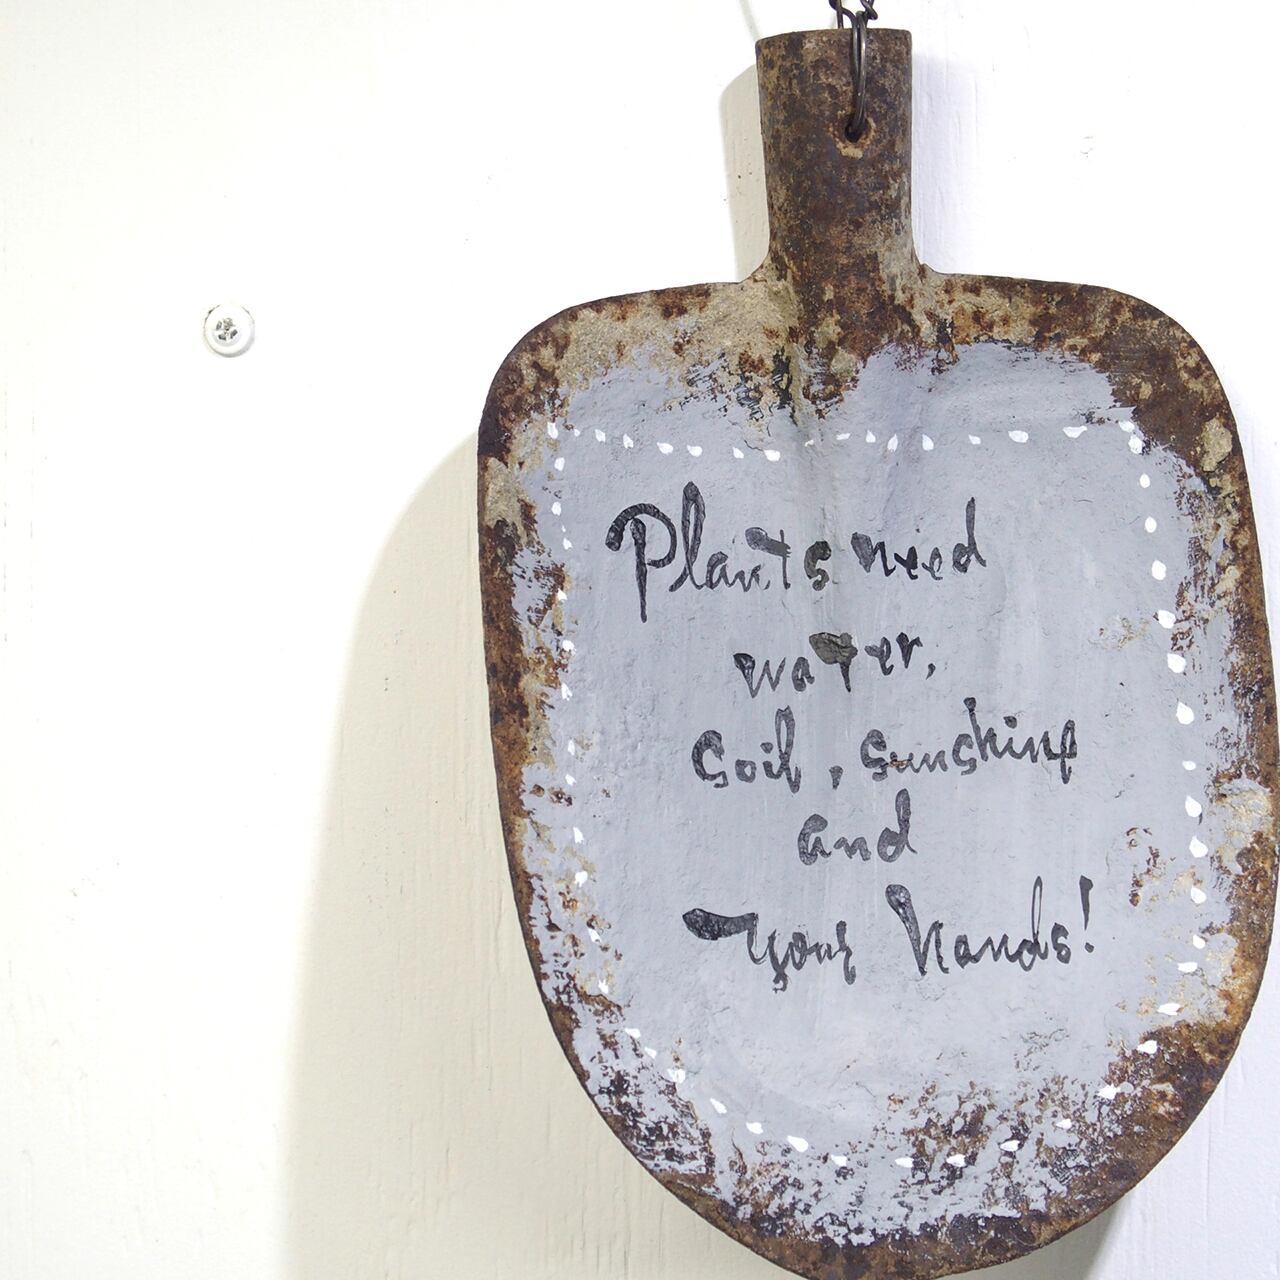 Plants need
water,
Soil, Sunshine
and
your hands!